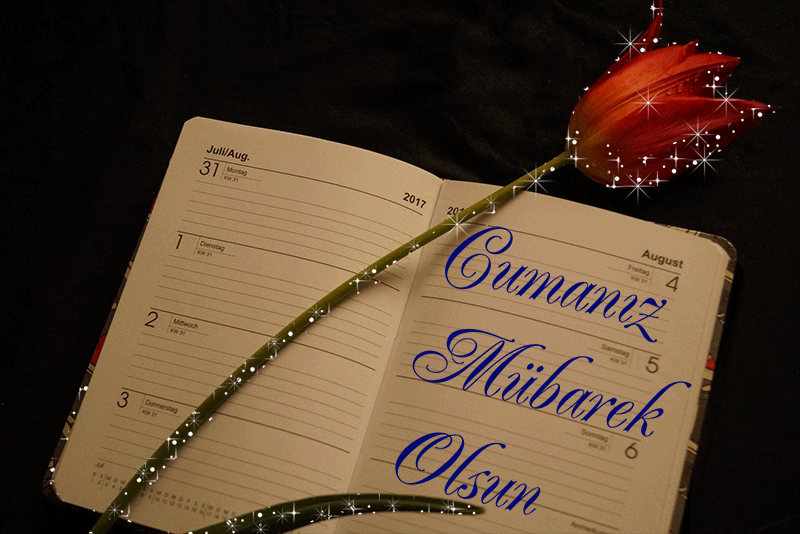 Juli/Aug.
31 Montag
KW 31
2017
1 Dienstag
KW 31
2 Mittwoch
KW 31
3 Donnerstag
KW 31
Juli
August
Freitag 4
KW 31
Cumanız
Samstag 5
KW 31
Mübarek
Sonntag 6
KW 31
Olsun